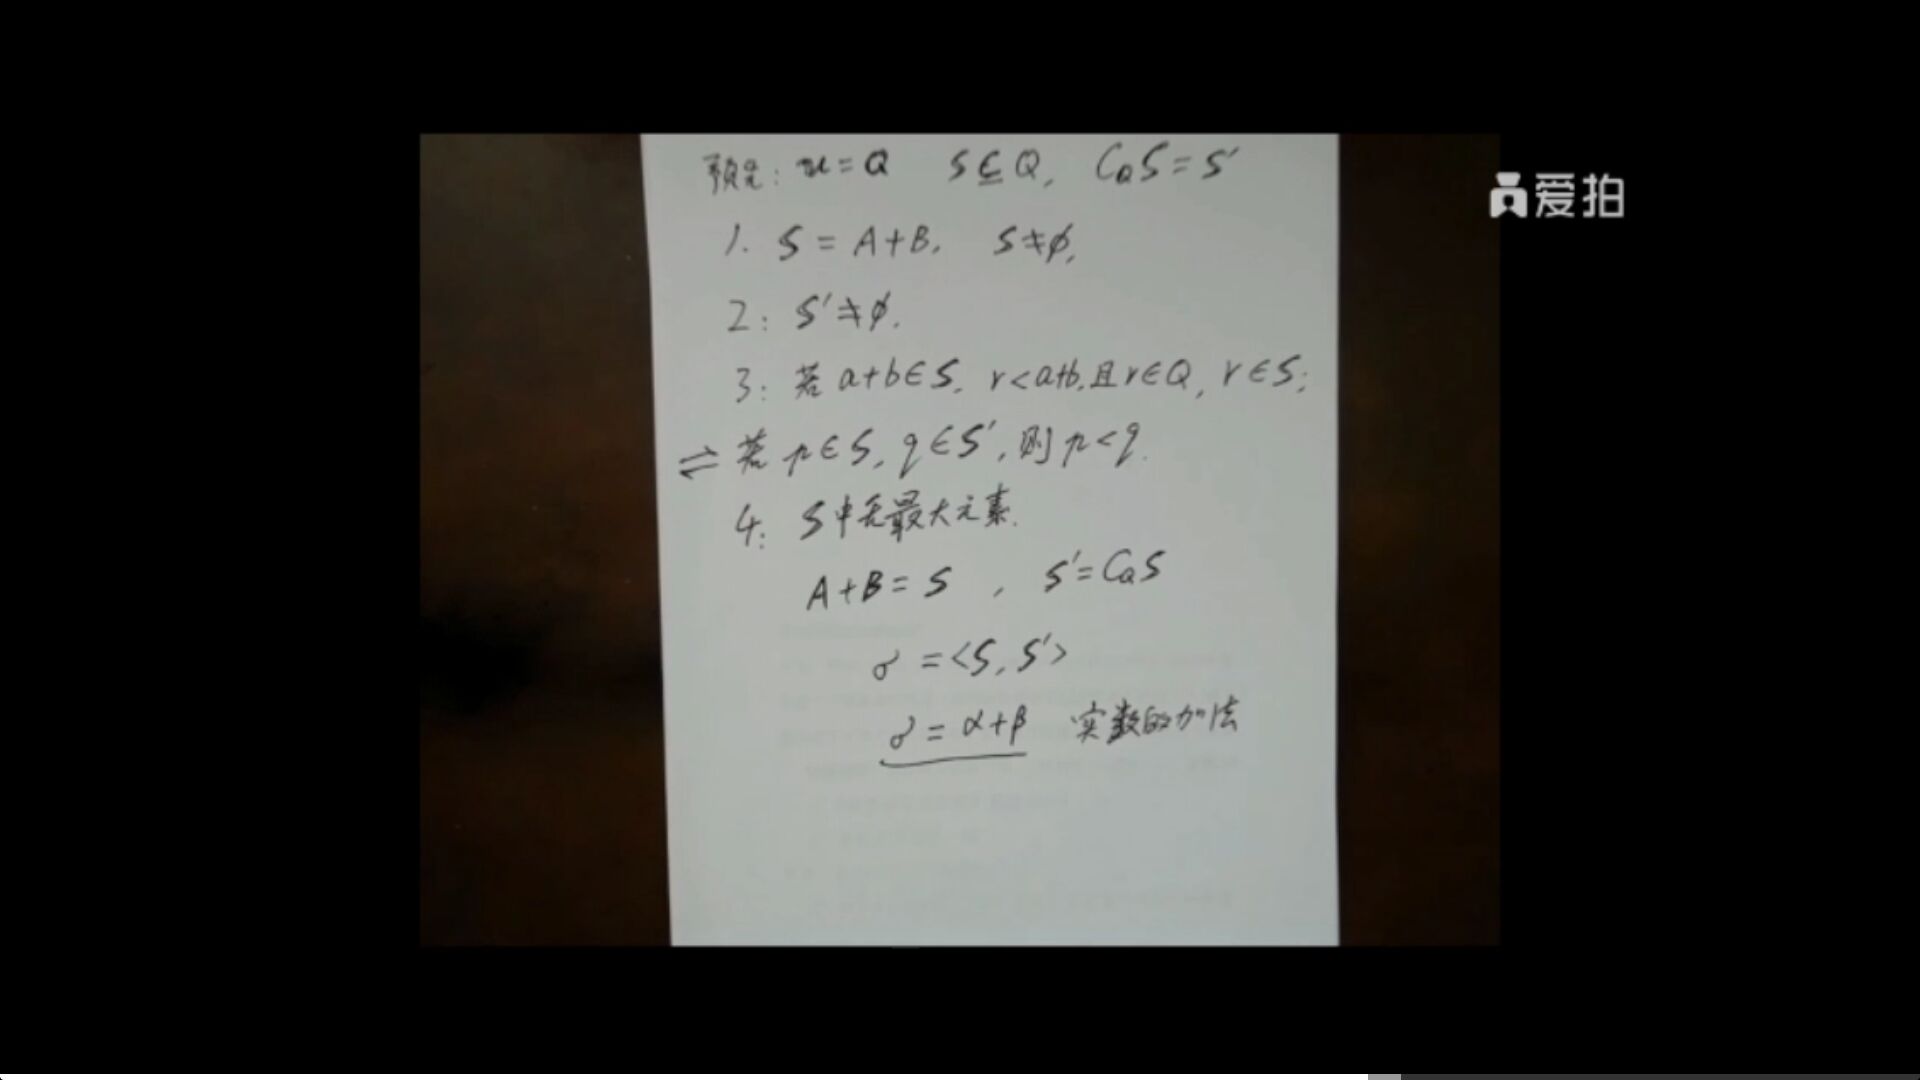 预先: u=Q S⊆Q, CQS=S′
爱拍
1. S=A+B, S≠φ,
2: S′≠φ.
3: 若a+b∈S, r<a+b,且r∈Q, r∈S;
⇌若p∈S, q∈S′,则p<q.
4: S中无最大元素.
A+B=S , S′=CQS
σ=<S,S′>
σ=α+β 实数的加法